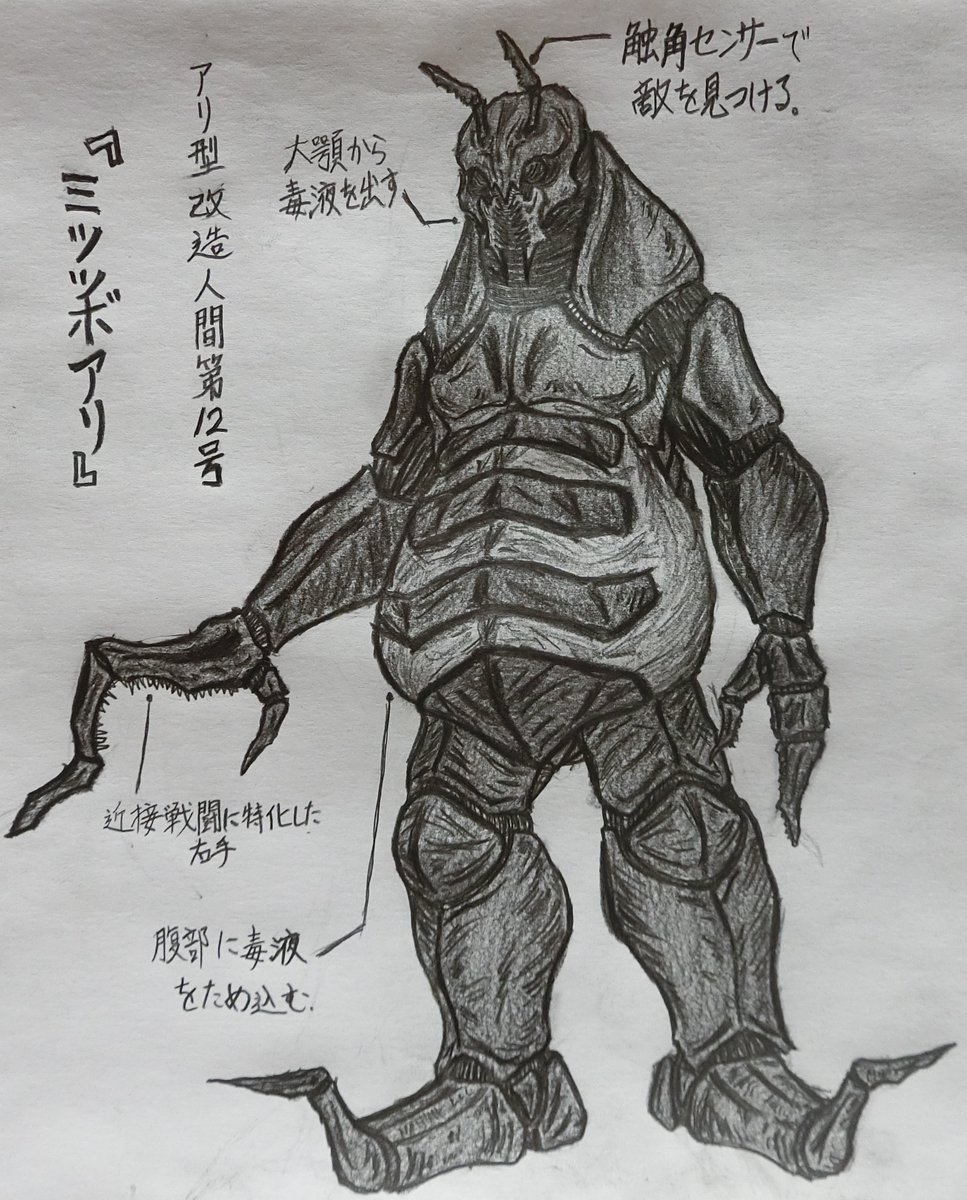 『ミツツボアリ』
アリ型改造人間第12号
触角センサーで
敵を見つける。
大顎から
毒液を出す
近接戦闘に特化した
右手
腹部に毒液
をため込む.